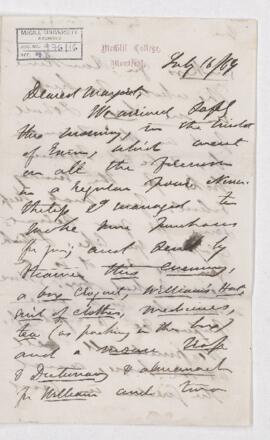 McGILL UNIVERSITY
ARCHIVES
ACC. 936/16
REF. 48
McGill College,
Montreal.
July 16/69
Dearest Margaret
We arrived safe
this morning, in the midst
of rain, which went
on all the forenoon
in a regular pour. Never
theless I managed to
make some purchases
for you; and send by
Steamer this evening,
a box Croquet, William's Hat,
suit of clothes, medicines,
tea (as packing in the box)
and a
& Dictionary & almanack
for William and two